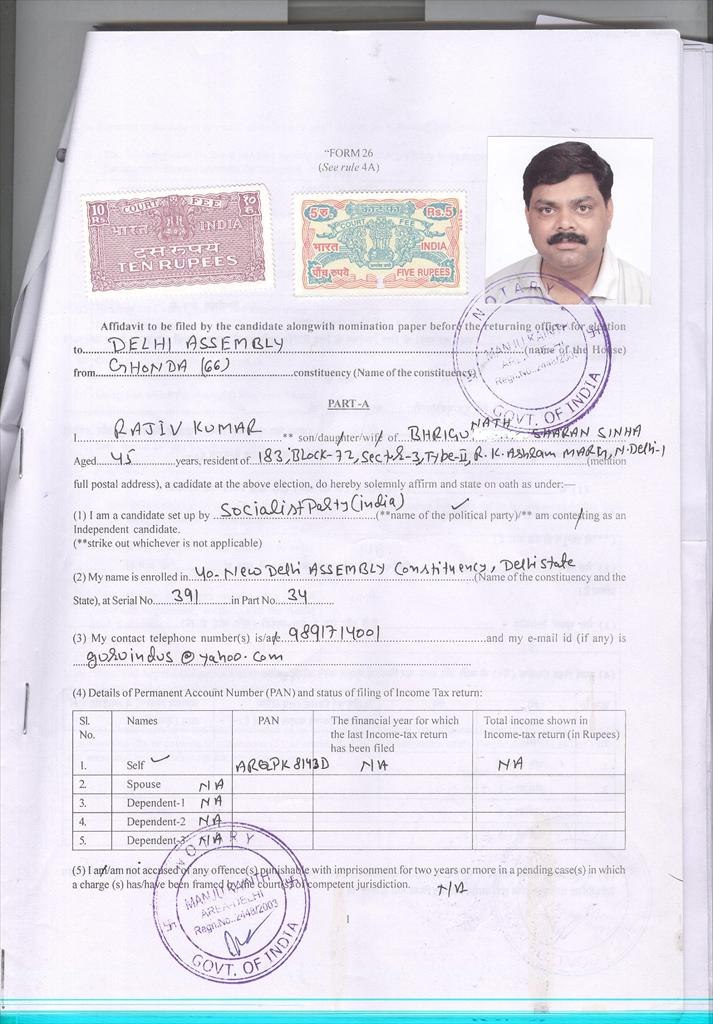 “FORM 26
(See rule 4A)
10 Rs. COURT FEE १० रु
भारत INDIA
दस रुपये
TEN RUPEES
5 रु. कोर्ट फ़ी Rs. 5
COURT FEE
भारत INDIA
पाँच रुपये FIVE RUPEES
Affidavit to be filed by the candidate alongwith nomination paper before the returning officer for election
to DELHI ASSEMBLY (name of the House)
from GHONDA (66) constituency (Name of the constituency)
NOTARY
MANJU
AREA
Regn.No.:2448/2003
GOVT. OF INDIA
PART-A
I RAJIV KUMAR ** son/daughter/wife of BHRIGU NATH SHARAN SINHA
Aged 45 years, resident of 183, Block-72, Sector-3, Type-II, R.K. Ashram MARG, N.Delhi-1 (mention
full postal address), a cadidate at the above election, do hereby solemnly affirm and state on oath as under:—
(1) I am a candidate set up by Socialist Party (india) (**name of the political party)/** am contesting as an
Independent candidate.
(**strike out whichever is not applicable)
(2) My name is enrolled in 40-New Delhi ASSEMBLY Constituency, Delhi State (Name of the constituency and the
State), at Serial No. 391 in Part No. 34
(3) My contact telephone number(s) is/are 9891714001 and my e-mail id (if any) is
guruindus@yahoo.com
(4) Details of Permanent Account Number (PAN) and status of filing of Income Tax return:
Sl. No. Names PAN The financial year for which the last Income-tax return has been filed Total income shown in Income-tax return (in Rupees)
1. Self NA NA
2. Spouse NA
3. Dependent-1 NA
4. Dependent-2 NA
5. Dependent-3 N/A
(5) I am/am not accused of any offence(s) punishable with imprisonment for two years or more in a pending case(s) in which
a charge (s) has/have been framed by the court(s) of competent jurisdiction. N/A
NOTARY
MANJU
AREA-DELHI
Regn.No.:2448/2003
GOVT. OF INDIA
1